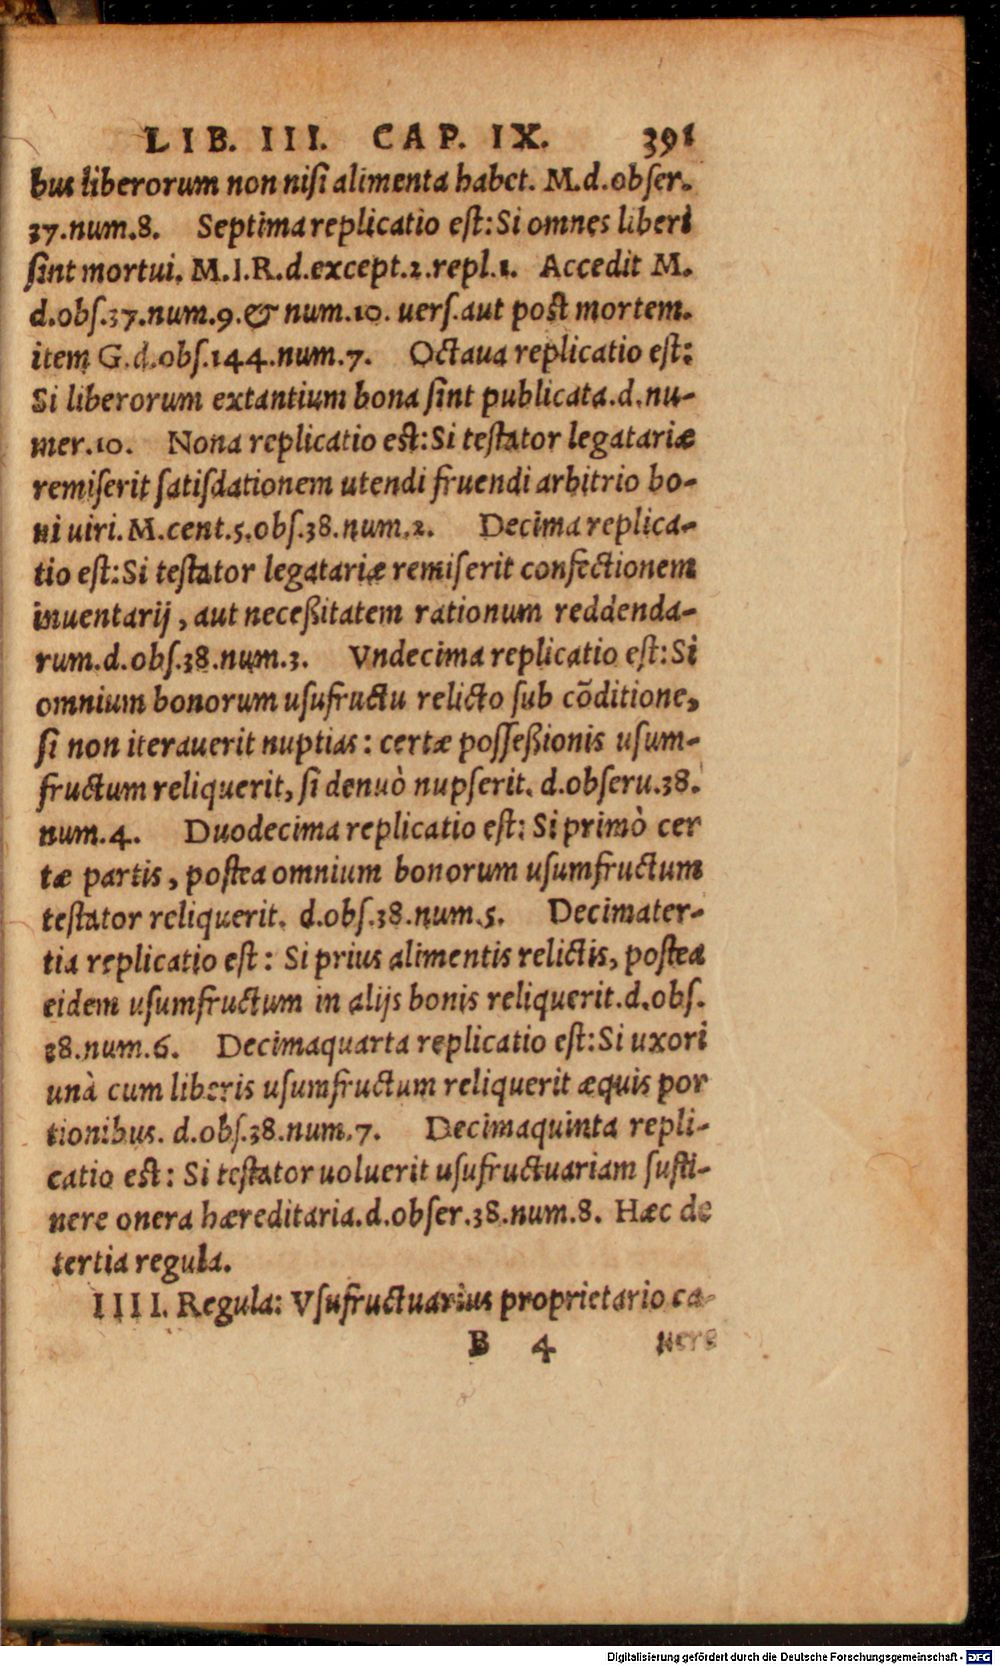 LIB. III. CAP. IX. 391
bus liberorum non nisi alimenta habet. M.d.obser.
37.num.8. Septima replicatio est: Si omnes liberi
sint mortui. M.I.R.d.except.2.repl.1. Accedit M.
d.obs.37.num.9.& num.10. uers.aut post mortem.
item G.d.obs.144.num.7. Octaua replicatio est:
Si liberorum extantium bona sint publicata.d.nu-
mer.10. Nona replicatio est: Si testator legatariæ
remiserit satisdationem utendi fruendi arbitrio bo-
ni uiri. M.cent.5.obs.38.num.2. Decima replica-
tio est: Si testator legatariæ remiserit confectionem
inuentarij, aut neceßitatem rationum reddenda-
rum.d.obs.38.num.3. Vndecima replicatio est: Si
omnium bonorum usufructu relicto sub cõditione,
si non iterauerit nuptias: certæ posseßionis usum-
fructum reliquerit, si denuò nupserit. d.obseru.38.
num.4. Duodecima replicatio est: Si primò cer
tæ partis, postea omnium bonorum usumfructum
testator reliquerit. d.obs.38.num.5. Decimater-
tia replicatio est: Si prius alimentis relictis, postea
eidem usumfructum in alijs bonis reliquerit.d.obs.
38.num.6. Decimaquarta replicatio est: Si uxori
unà cum liberis usumfructum reliquerit æquis por
tionibus. d.obs.38.num.7. Decimaquinta repli-
catio est: Si testator uoluerit usufructuariam susti-
nere onera hæreditaria.d.obser.38.num.8. Hæc de
tertia regula.
IIII. Regula: Vsufructuarius proprietario ca-
B 4 uere
Digitalisierung gefördert durch die Deutsche Forschungsgemeinschaft - DFG